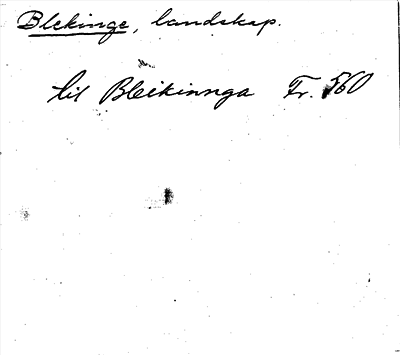 Blekinge, landskap.
til Bleikinnga Fr. 560